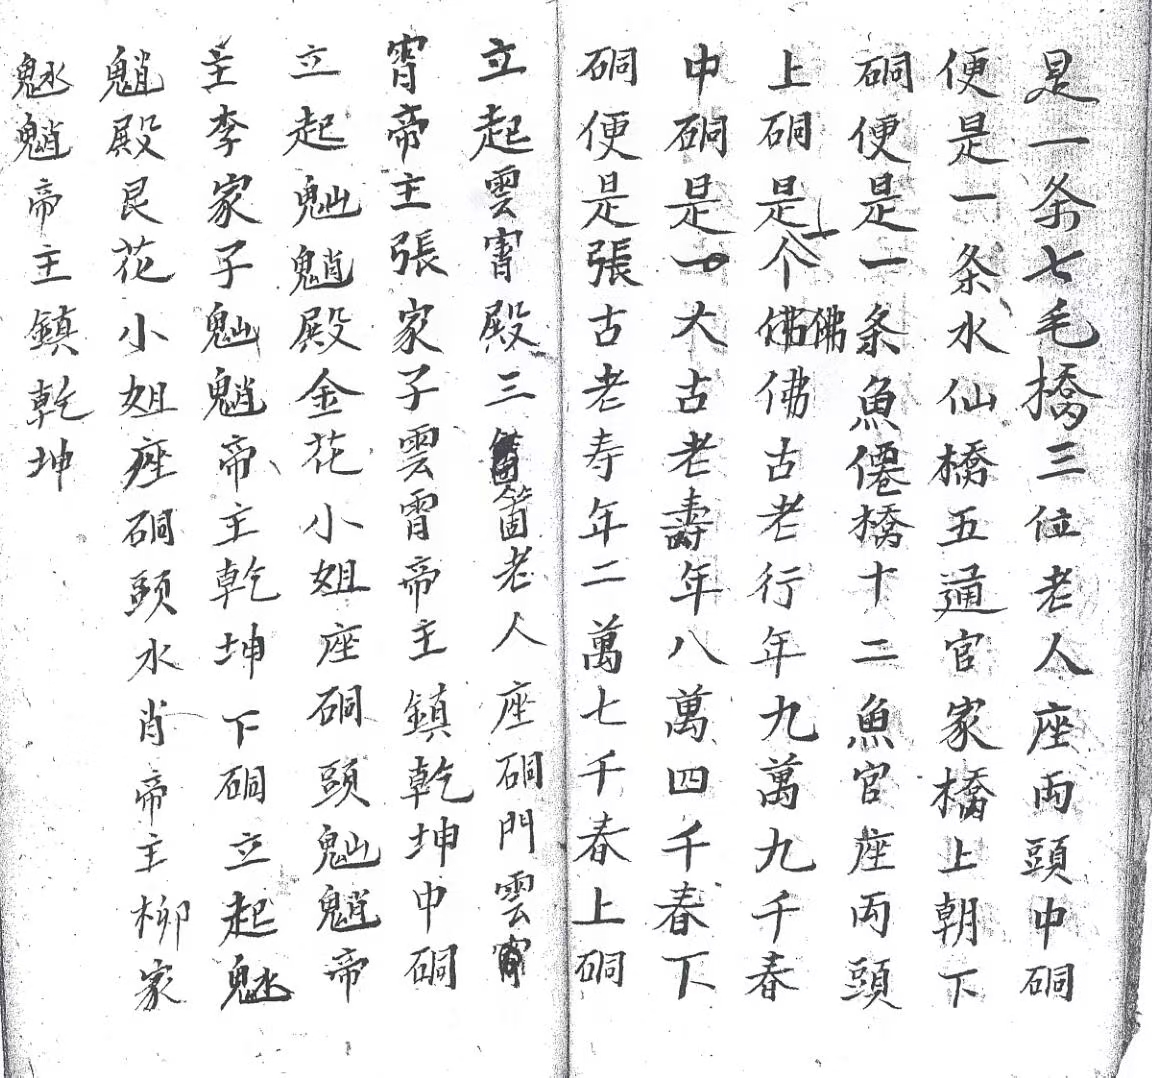 是一条七毛橋三位老人座両頭中硐
便是一条水仙橋五通官家橋上朝下
硐便是一条魚僊橋十二魚官座両頭
上硐是一个佛佛佛古老行年九萬九千春
中硐是一大古老壽年八萬四千春下
硐便是張古老寿年二萬七千春上硐
立起雲霄殿三箇老人座硐門雲霄
霄帝主張家子雲霄帝主鎮乾坤中硐
立起魈殿金花小姐座硐頭魈帝
主李家子魈帝主乾坤下硐立起
魈殿艮花小姐座硐頭水肖帝主柳家
魈帝主鎮乾坤